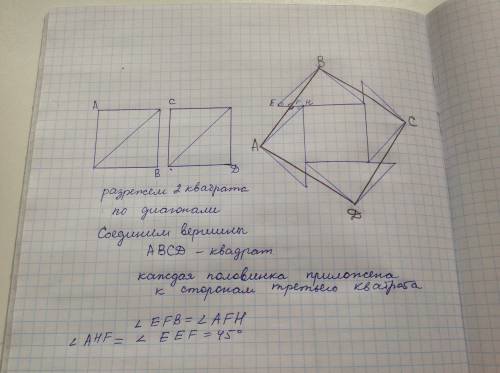 A
C
B
D
B
E F H
A
C
D
разрежем 2 квадрата
по диагонали
Соединим вершины
ABCD - квадрат
каждая половинка приложена
к сторонам третьего квадрата
∠ EFB = ∠ AFH
∠ AHF = ∠ EEF = 45°